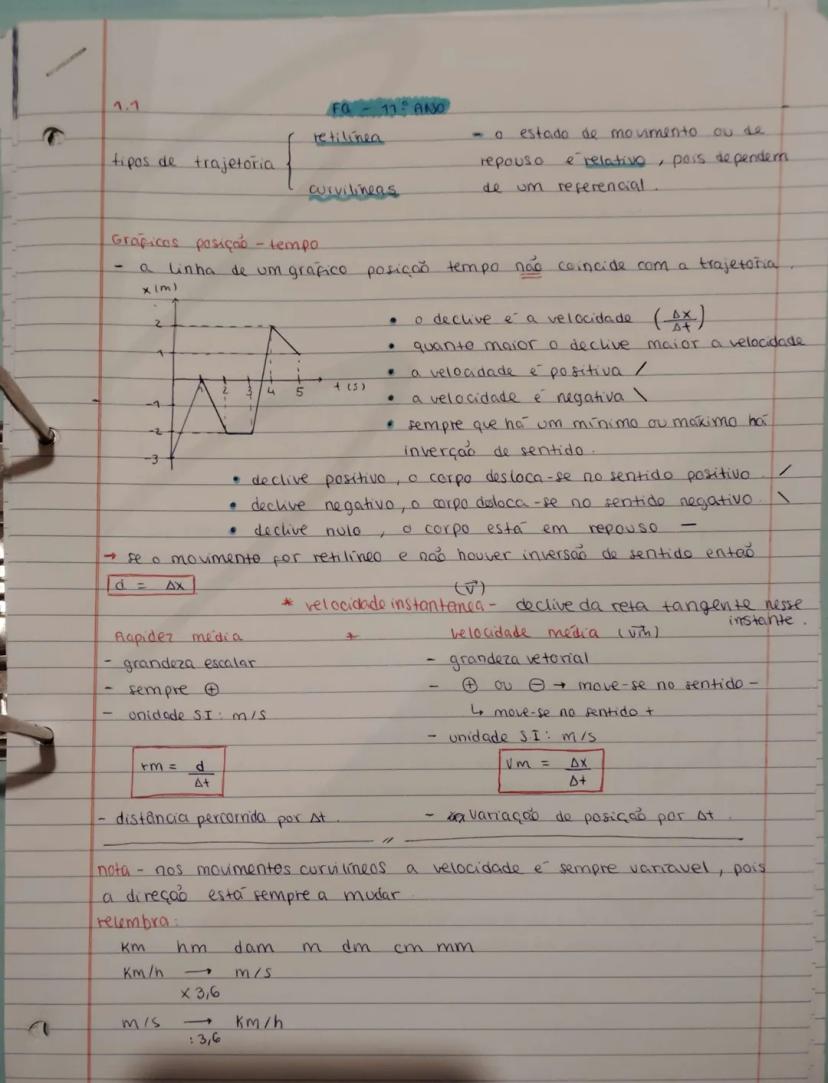 1.1
FQ - 11º ANO
tipos de trajetória
retilínea
curvilíneas
- o estado de movimento ou de
repouso é relativo, pois dependem
de um referencial.
Gráficos posição - tempo
- a linha de um gráfico posição tempo não coincide com a trajetória.
x(m)
2
1
2 3 4 5 t(s)
-1
-2
-3
• o declive é a velocidade (Δx/Δt)
• quanto maior o declive maior a velocidade
• a velocidade é positiva /
• a velocidade é negativa \
• sempre que há um mínimo ou máximo há
inverção de sentido.
• declive positivo, o corpo desloca-se no sentido positivo. /
• declive negativo, o corpo deloca-se no sentido negativo. \
• declive nulo, o corpo está em repouso —
→ se o movimento for retilíneo e não houver inversão de sentido então
d = Δx
(v⃗)
* velocidade instantânea - declive da reta tangente nesse
instante.
Rapidez média
*
velocidade média (v⃗m)
- grandeza escalar
- grandeza vetorial
- sempre ⊕
- ⊕ ou ⊖ → move-se no sentido -
↳ move-se no sentido +
- unidade SI: m/s
- unidade SI: m/s
rm = d/Δt
Vm = Δx/Δt
- distância percorrida por Δt.
- variação de posição por Δt.
nota - nos movimentos curvilíneos a velocidade é sempre variável, pois
a direção está sempre a mudar.
relembra:
Km hm dam m dm cm mm
Km/h → m/s
x 3,6
m/s → Km/h
: 3,6